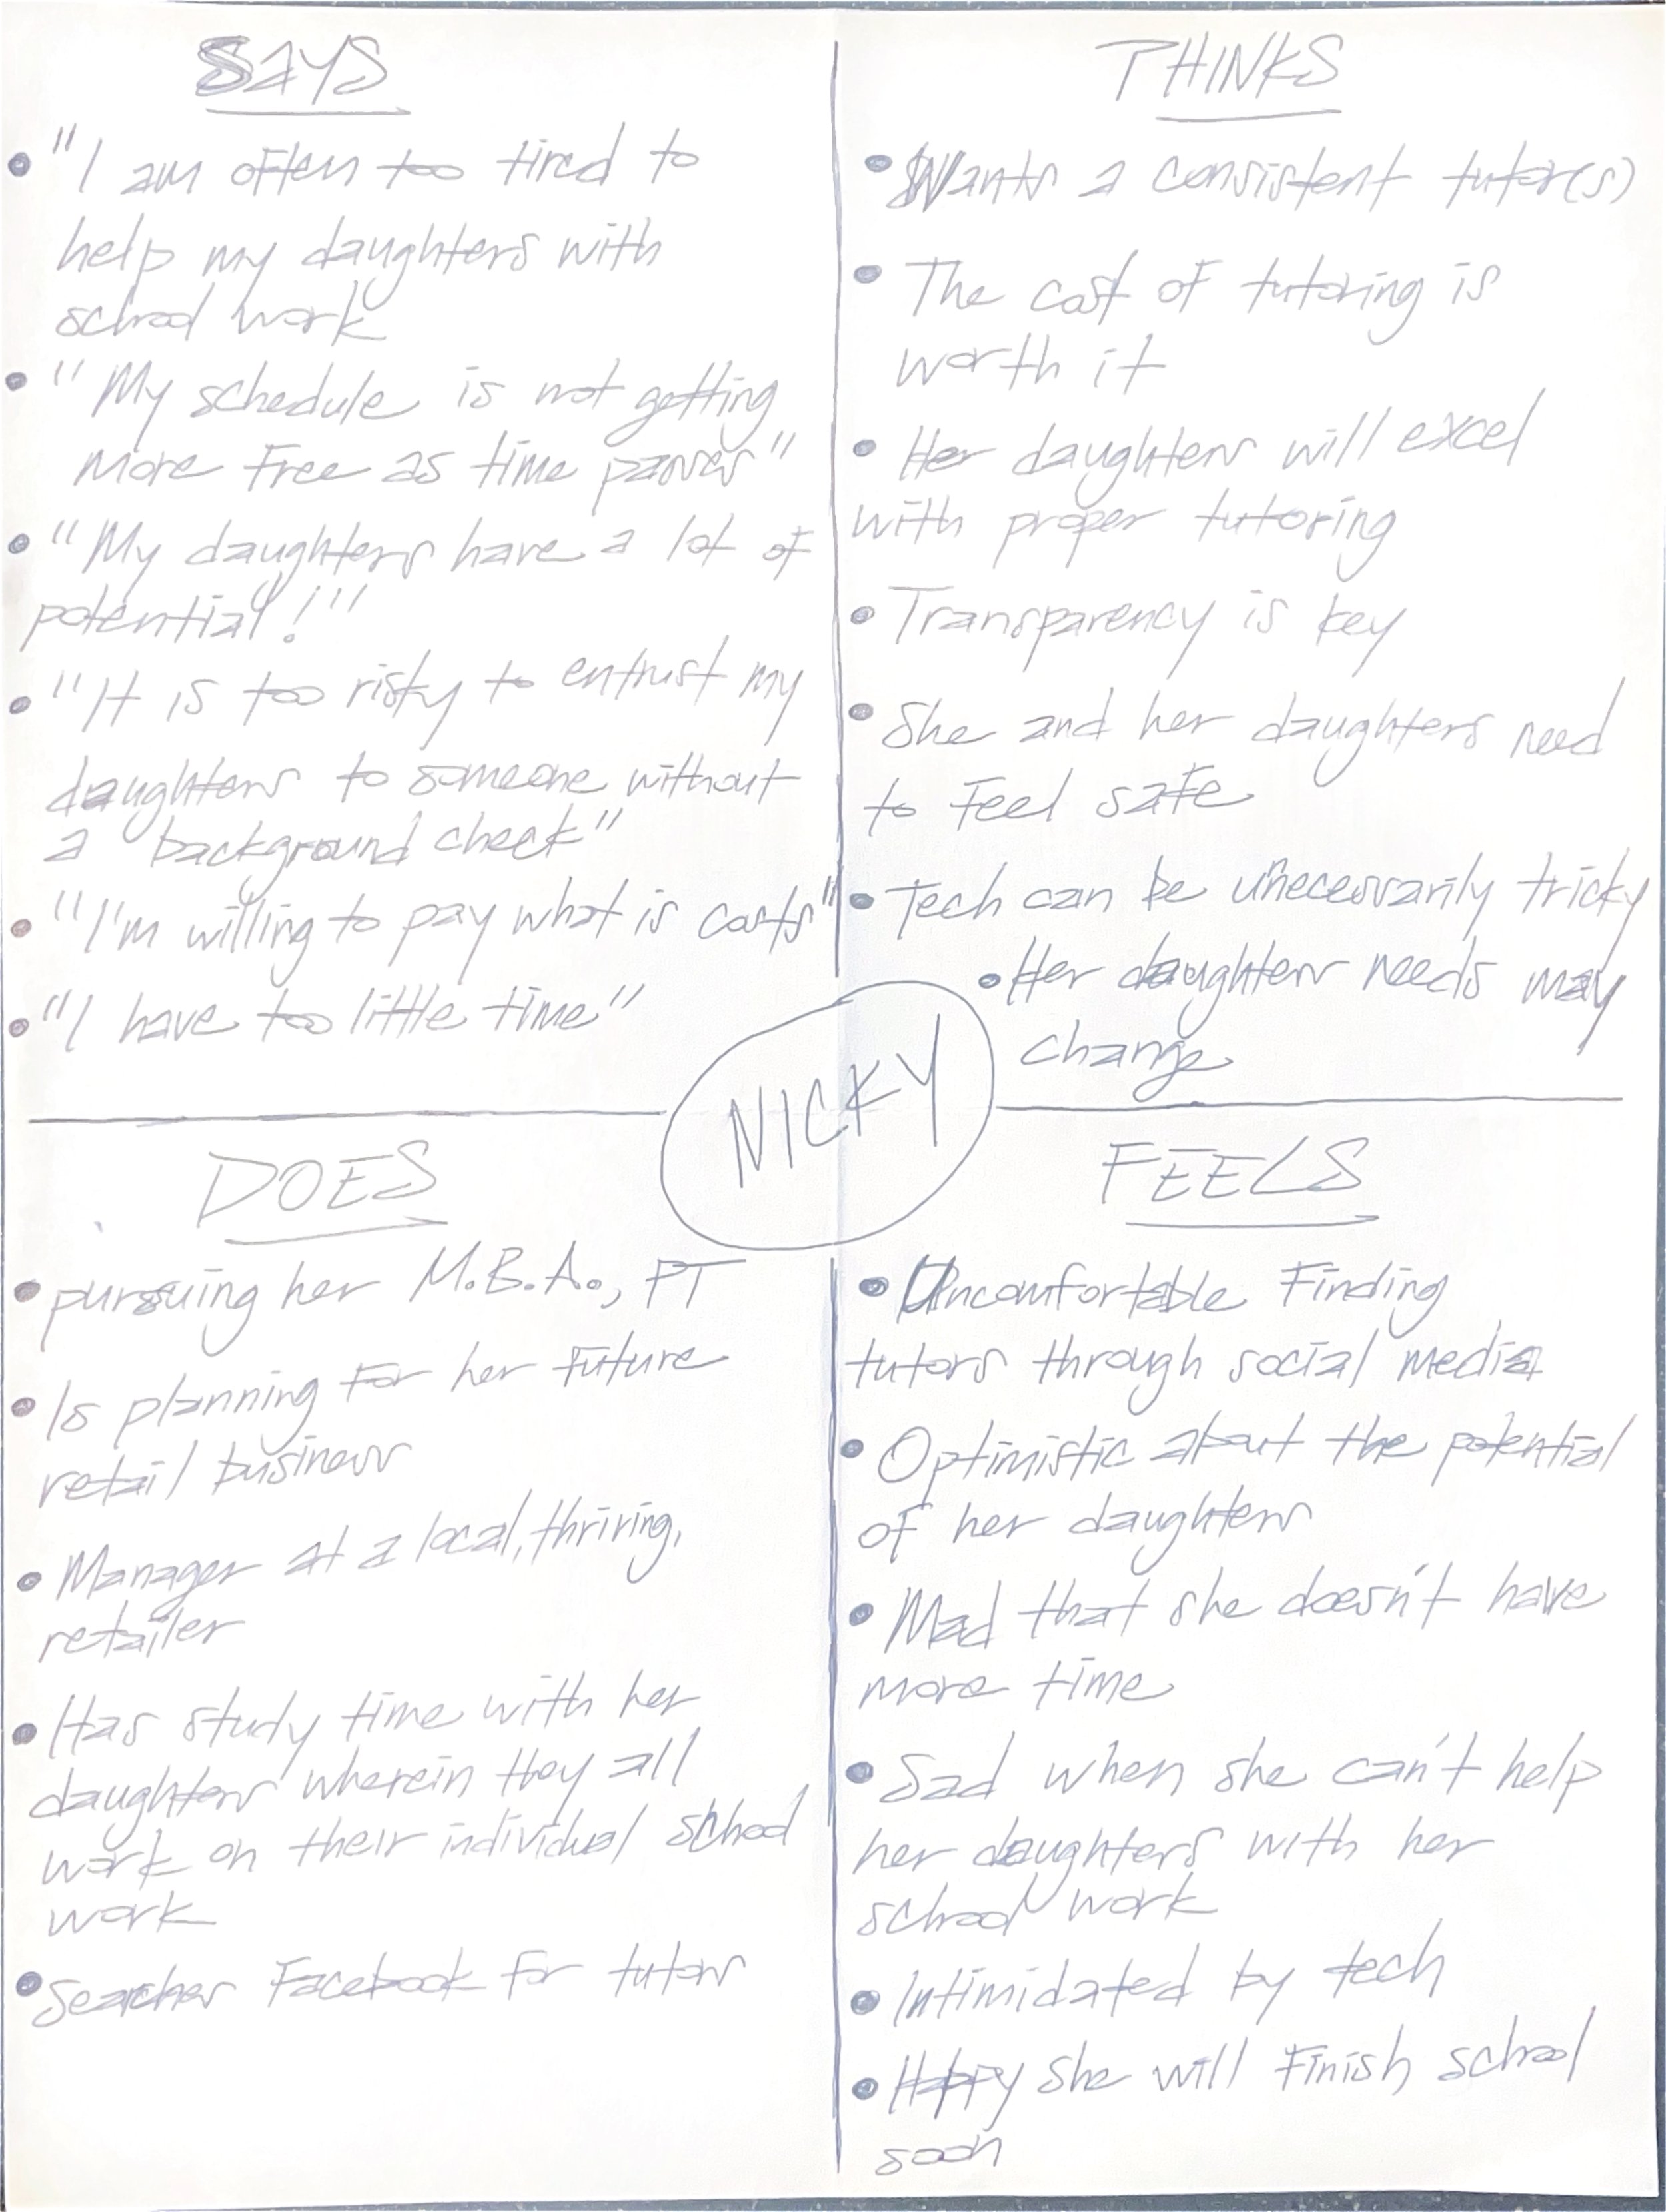 SAYS
• "I am often too tired to
help my daughters with
school work
• "My schedule is not getting
more free as time passes"
• "My daughters have a lot of
potential!"
• "It is too risky to entrust my
daughters to someone without
a background check"
• "I'm willing to pay what is costs"
• "I have too little time"
THINKS
• Wants a consistent tutor(s)
• The cost of tutoring is
worth it
• Her daughters will excel
with proper tutoring
• Transparency is key
• She and her daughters need
to feel safe
• Tech can be unecessarily tricky
• Her daughters needs may
change
NICKY
DOES
• pursuing her M.B.A., PT
• Is planning for her future
retail business
• Manager at a local, thriving,
retailer
• Has study time with her
daughters wherein they all
work on their individual school
work
• Searches Facebook for tutors
FEELS
• Uncomfortable finding
tutors through social media
• Optimistic about the potential
of her daughters
• Mad that she doesn't have
more time
• Sad when she can't help
her daughters with her
school work
• Intimidated by tech
• Happy she will finish school
soon